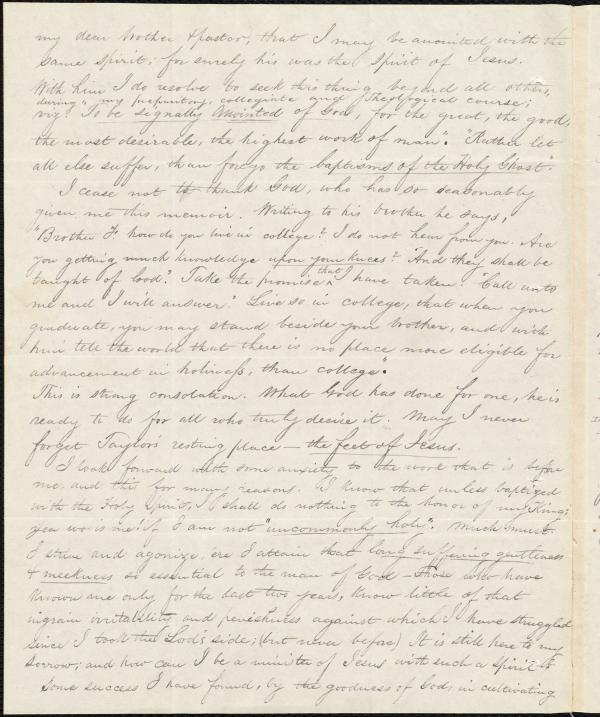 my dear brother & pastor, that I may be anointed with the
same spirit; for surely his was the spirit of Jesus.
With him I do resolve to seek this thing beyond all others,
during my preparatory, collegiate and Theological course;
viz. To be signally Anointed of God, for the great, the good,
the most desirable, the highest work of man". "Rather let
all else suffer, than forego the baptisms of the Holy Ghost".
I cease not to thank God, who has so seasonably
given me this memoir. Writing to his brother he says,
"Brother F. how do you live in college? I do not hear from you. Are
you getting much knowledge upon your knees? "And they shall be
taught of God". Take the promise that I have taken. "Call unto
me and I will answer." Live so in college, that when you
graduate, you may stand beside your brother, and with
him tell the world that there is no place more eligible for
advancement in holiness, than college."
This is strong consolation. What God has done for one, he is
ready to do for all who truly desire it. May I never
forget Taylor's resting place — the feet of Jesus.
I look forward with some anxiety to the work that is before
me. and this for many reasons. I know that unless baptized
with the Holy Spirit, I shall do nothing to the honor of my King;
yea wo is me if I am not "uncommonly holy". Much must
I strive and agonize, ere I attain that long suffering gentleness
& meekness so essential to the man of God — Those who have
known me only for the last two years, know little of that
ingrain irritability and peevishness against which I have struggled
since I took the Lord's side; (but never before) It is still here to my
sorrow; and how can I be a minister of Jesus with such a spirit?
Some success I have found, by the goodness of God, in cultivating